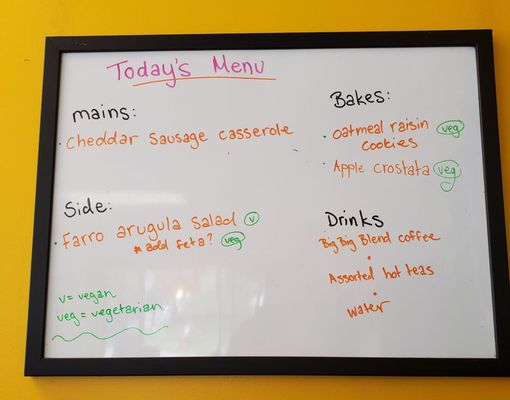 Today's Menu
mains:
· Cheddar Sausage casserole
Side:
· Farro arugula Salad v
* add feta? veg
v = vegan
veg = vegetarian
Bakes:
· Oatmeal raisin veg
cookies
· Apple Crostata veg
Drinks
Big Big Blend coffee
·
Assorted hot teas
·
Water